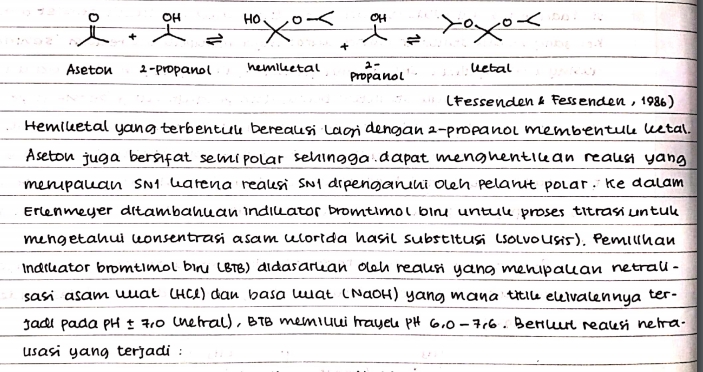 O OH HO O OH O O
+ ⇌ + ⇌
Aseton 2-propanol hemiketal 2-propanol ketal
(Fessenden & Fessenden, 1986)
Hemiketal yang terbentuk bereaksi lagi dengan 2-propanol membentuk ketal.
Aseton juga bersifat semipolar sehingga dapat menghentikan reaksi yang
merupakan SN1 karena reaksi SN1 dipengaruhi oleh pelarut polar. Ke dalam
Erlenmeyer ditambahkan indikator bromtimol biru untuk proses titrasi untuk
mengetahui konsentrasi asam klorida hasil substitusi (solvolisis). Pemilihan
indikator bromtimol biru (BTB) didasarkan oleh reaksi yang merupakan netrali-
sasi asam kuat (HCl) dan basa kuat (NaOH) yang mana titik ekivalennya ter-
jadi pada pH ± 7,0 (netral), BTB memiliki trayek pH 6,0 - 7,6. Berikut reaksi netra-
lisasi yang terjadi :